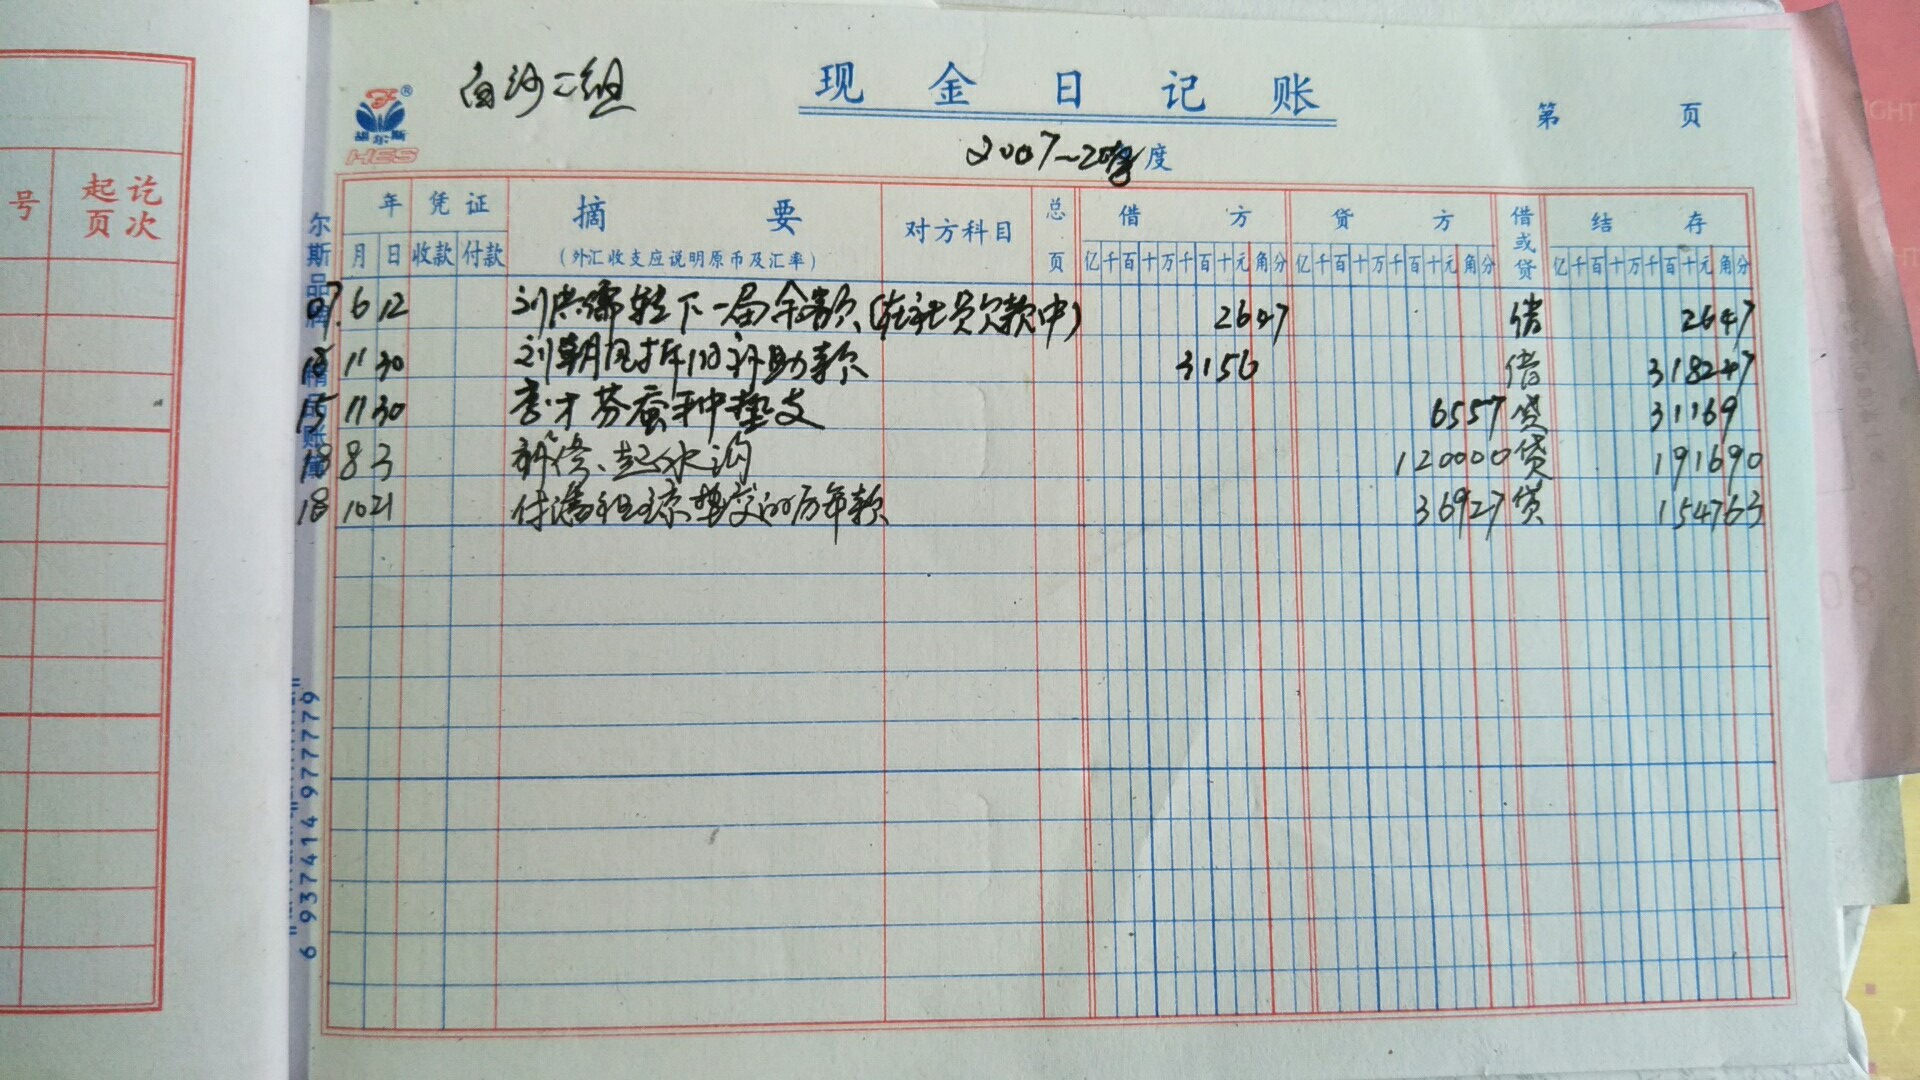 号 起讫
页次
白沙二组
现金日记账
第 页
福尔斯
HES
2007~2018度
年 凭证 摘要 对方科目 总页 借方 贷方 借或贷 结存
月 日 收款 付款 (外汇收支应说明原币及汇率) 亿千百十万千百十元角分 亿千百十万千百十元角分 亿千百十万千百十元角分
07. 6 12 转下一届余款(在社员欠款中) 2647 借 2647
11 30 刘朝 补助款 3156 借 318247
15 11 30 李才芬蚕种垫支 6557 贷 31169
18 8 3 水沟 120000 贷 191690
18 10 21 付潘 垫交的历年款 36927 贷 154763
尔斯品牌 精品账簿
6 937414 977779